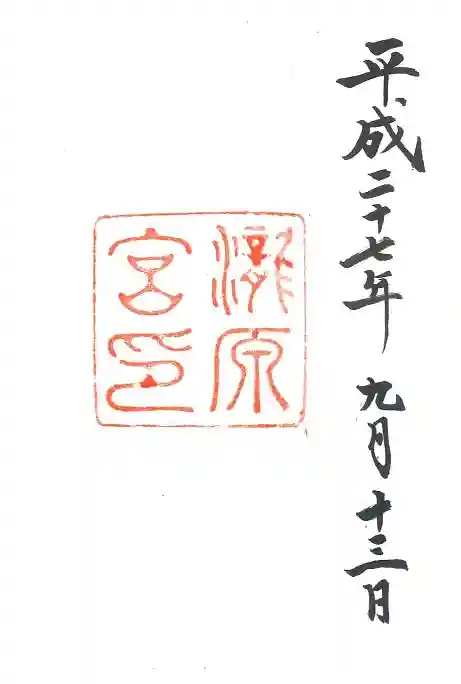 平成二十七年 九月十三日
瀧原
宮印